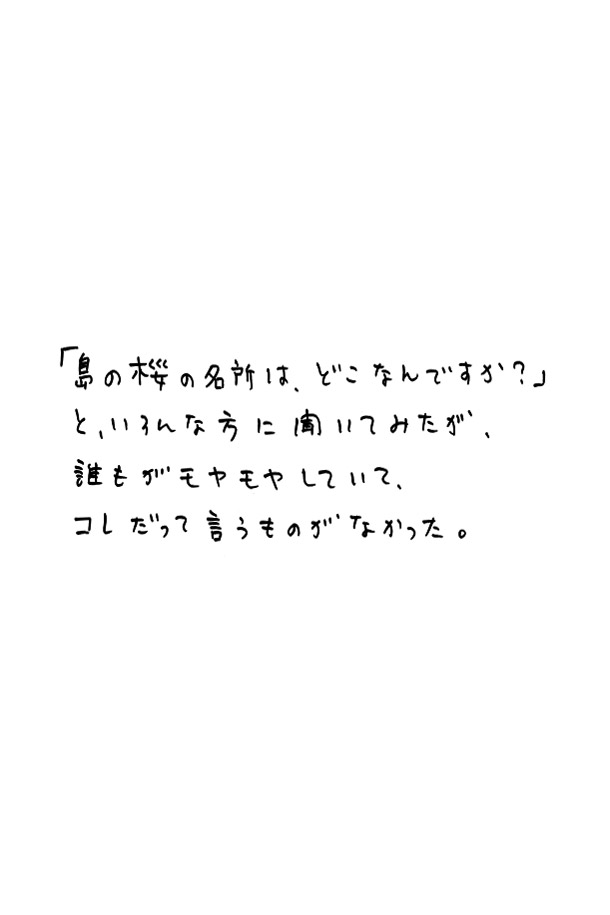 「島の桜の名所は、どこなんですか？」
と、いろんな方に聞いてみたが、
誰もがモヤモヤしていて、
コレだって言うものがなかった。